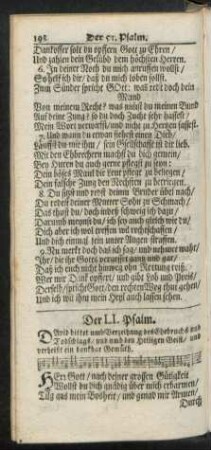 198 Der 50. Psalm.
Danckopfer solt du opffern Gott zu Ehren/
Und zahlen dein Gelübd dem höchsten Herren.
6. In deiner Noth du mich anruffen wollst/
So helf ich dir/ daß du mich loben sollst.
Zum Sünder spricht GOtt: was redt doch dein
Mund
Von meinem Recht? was nimst du meinen Bund
Auf deine Zung? so du doch Zucht sehr hassest/
Mein Wort verwirffst/ und nicht zu Hertzen fassest.
7. Und wann du einen siehest einen Dieb/
Lauffst du mit ihm/ sein Gesellschafft ist dir lieb.
Mit den Ehbrechern machst du dich gemein/
Bey Huren du auch gerne pflegst zu seyn:
Dein böses Maul die leut pflegt zu beliegen/
Dein falsche Zung den Nechsten zu betriegen.
8. Du sitzst und redst deinem Bruder übel nach/
Du redest deiner Mutter Sohn zu Schmach/
Das thust du/ doch indes schweig ich darzu/
Darumb meynst du/ ich sey auch gleich wie du/
Dich aber ich wol treffen wil rechtschaffen/
Und diß einmal dein unter Augen straffen.
9. Nu merkt doch das ich sag/ und nehmt wahr/
Ihr/ die ihr Gottes vergesset gantz und gar/
Daß ich euch nicht hinweg ohn Rettung reiß.
Wer mir Dank opffert/ und gibt Lob und Preiß/
Derselb/ spricht Gott/ den rechten Weg thut gehen/
Und ich wil ihm mein Heyl auch lassen sehen.
Der LI. Psalm.
David bittet umb Verzeyhung des Ehebruchs und
Todschlags/ und umb den Heiligen Geist/ und
verheist ein dankbar Gemüth.
HErr Gott/ nach deiner grossen Gütigkeit
Wollst du dich gnädig über mich erbarmen/
Tilg aus mein Bosheit/ und genad mir Armen/
Durch